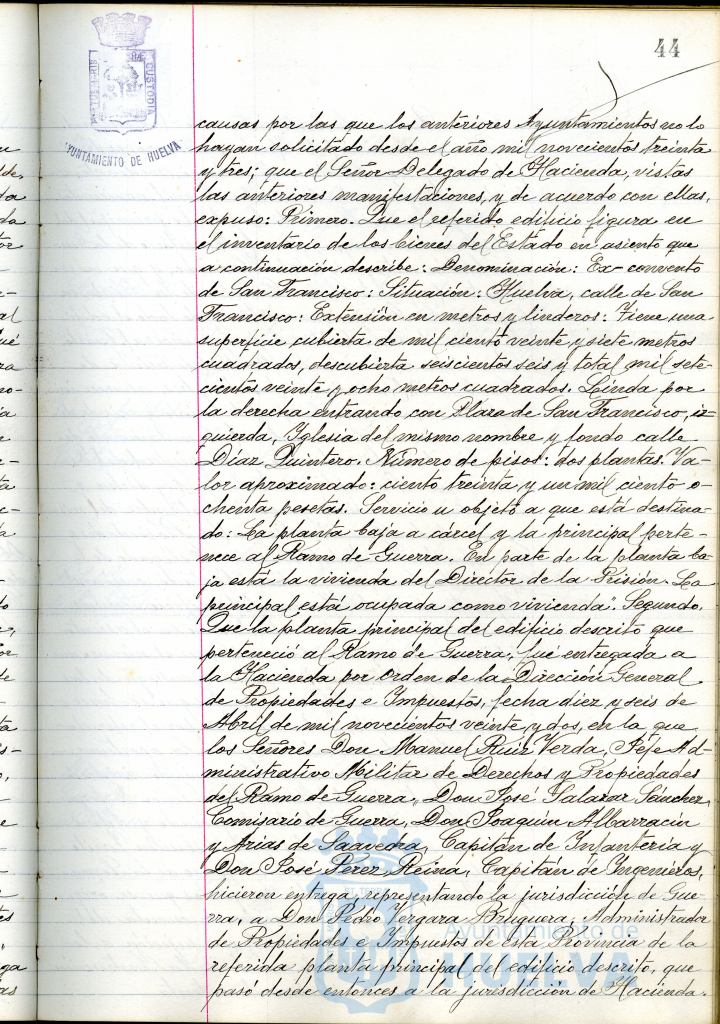 44
PORTUS MARIS ET TERRAE CUSTODIA
AYUNTAMIENTO DE HUELVA
causas por las que los anteriores Ayuntamientos no lo
hayan solicitado desde el año mil novecientos treinta
y tres; que el Señor Delegado de Hacienda, vistas
las anteriores manifestaciones, y de acuerdo con ellas,
expuso: Primero. Que el referido edificio figura en
el inventario de los bienes del Estado en asiento que
a continuación describe: Denominación: Ex-convento
de San Francisco: Situación: Huelva, calle de San
Francisco: Extensión en metros y linderos: Tiene una
superficie cubierta de mil ciento veinte y siete metros
cuadrados, descubierta seiscientos seis y total mil sete-
cientos veinte y ocho metros cuadrados. Linda por
la derecha entrando con Plaza de San Francisco, iz-
quierda, Iglesia del mismo nombre y fondo calle
Díaz Quintero. Número de pisos: dos plantas. Va-
lor aproximado: ciento treinta y un mil ciento o-
chenta pesetas. Servicio u objeto a que está destina-
do: La planta baja a cárcel y la principal perte-
nece al Ramo de Guerra. En parte de la planta ba-
ja está la vivienda del Director de la Prisión. La
principal está ocupada como vivienda". Segundo.
Que la planta principal del edificio descrito que
perteneció al Ramo de Guerra, fué entregada a
la Hacienda por orden de la Dirección General
de Propiedades e Impuestos, fecha diez y seis de
Abril de mil novecientos veinte y dos, en la que
los Señores Don Manuel Ruiz Verda, Jefe Ad-
ministrativo Militar de Derechos y Propiedades
del Ramo de Guerra, Don José Salazar Sánchez,
Comisario de Guerra, Don Joaquín Albarracín
y Arias de Saavedra, Capitán de Infantería y
Don José Pérez Reina, Capitán de Ingenieros,
hicieron entrega, representando la jurisdicción de Gue-
rra, a Don Pedro Vergara Bruguera, Administrador
de Propiedades e Impuestos de esta Provincia de la
referida planta principal del edificio descrito, que
pasó desde entonces a la jurisdicción de Hacienda.
Ayuntamiento de
HUELVA